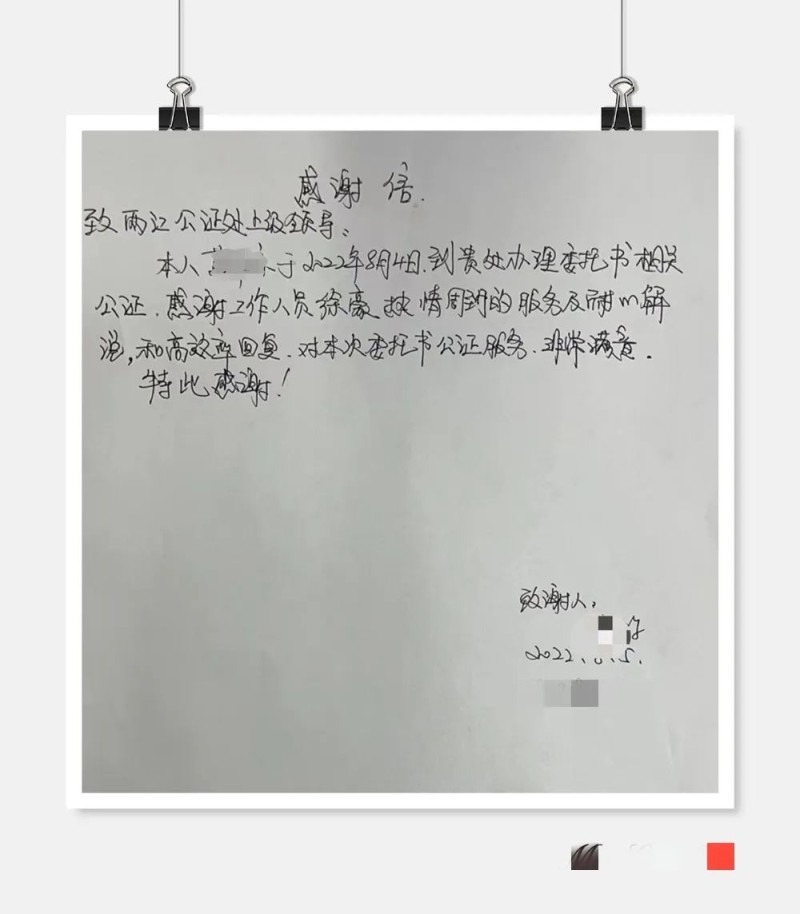 感谢信.
致两江公证处上级领导:
本人于2022年8月4日.到贵处办理委托书相关
公证.感谢工作人员徐豪热情周到的服务及耐心解
说,和高效率回复.对本次委托书公证服务.非常满意.
特此感谢!
致谢人:
2022. .5.